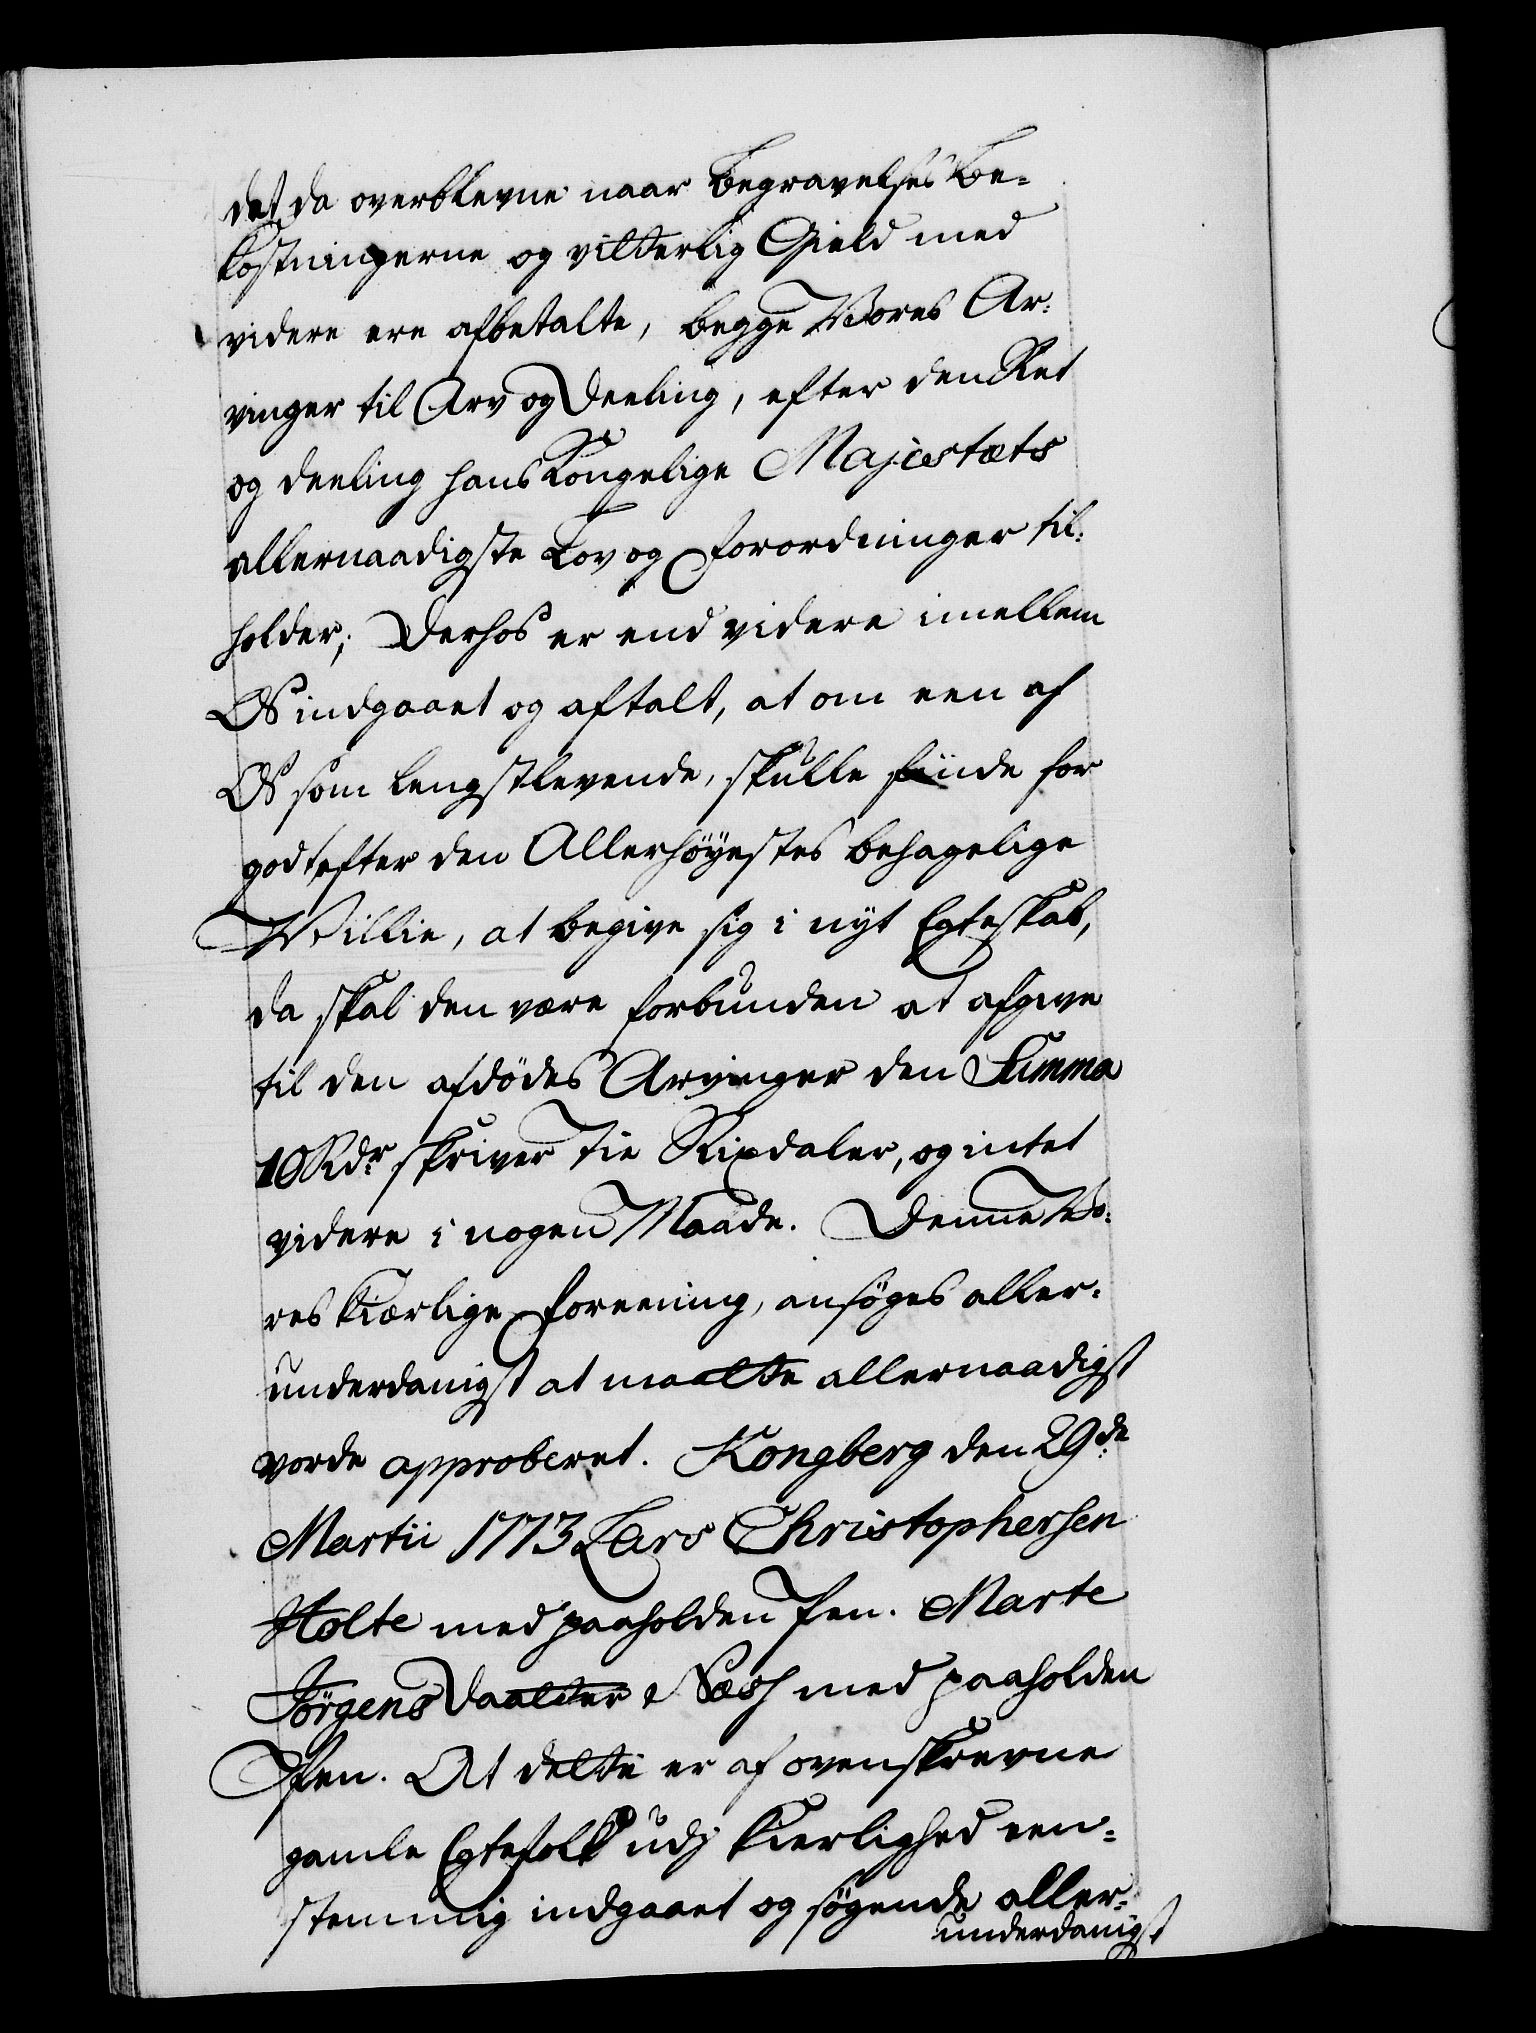 det da overblevne naar Begravelses Be-
kostningerne og vitterlig Gield med
videre ere afbetalte, begge Vores Ar-
vinger til Arv og Deeling, efter den Ret
og deeling hans Kongelige Majestæts
allernaadigste Lov og Forordninger til-
holder; Derhos er end videre imellem
Os indgaaet og aftalt, at om een af
Os som lengstlevende, skulle finde for
godt efter den Allerhöyestes behagelige
Villie, at begive sig i nyt Egteskab,
da skal den være forbunden at afgive
til den afdödes Arvinger den Summa
10 Rdr skriver Tie Rixdaler, og intet
videre i nogen Maade. Denne Vo-
res kiærlige Foreening, ansöges aller-
underdanigst at maatte allernaadigst
vorde approberet. Kongberg den 29de
Martii 1773 Lars Christophersen
Holte med paaholden Pen. Marte
Jörgens Daatter Næss med paaholden
Pen. At dette er af ovenskrevne
gamle Egtefolk udj Kierlighed een-
stemmig indgaaet og sögende aller-
underdanigst